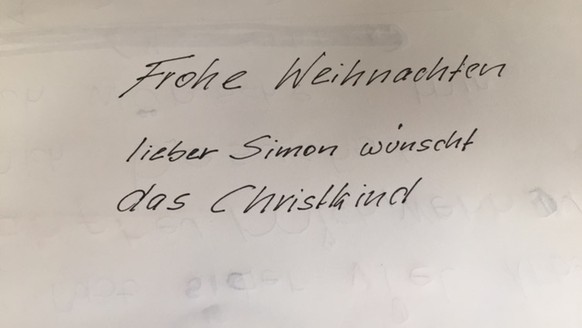 Frohe Weihnachten
lieber Simon wünscht
das Christkind